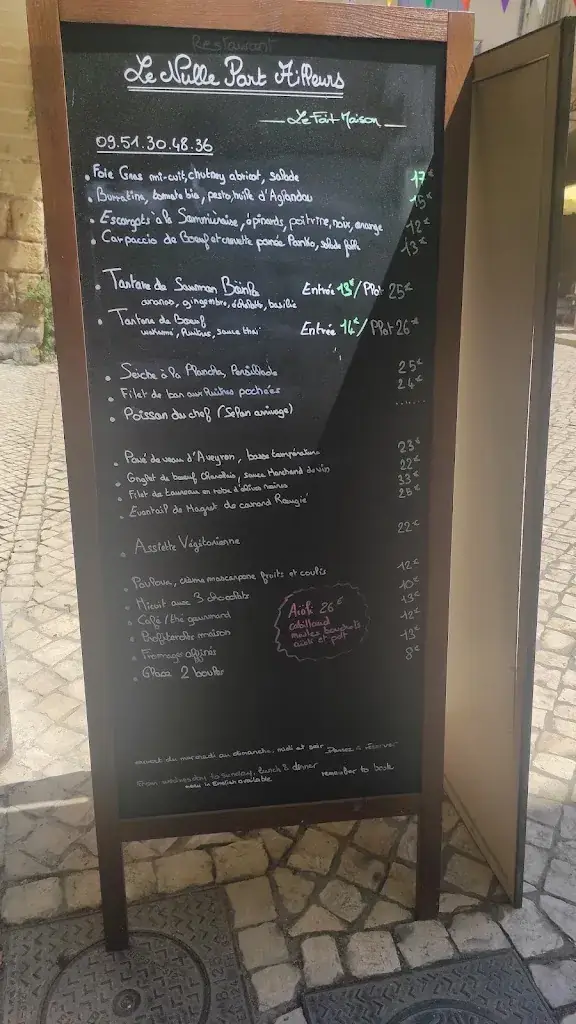 Restaurant
Le Nulle Part Ailleurs
Le Fait Maison
09.51.30.48.36
Foie Gras mi-cuit, chutney abricot, salade 17€
Burratina, tomate bio, pesto, huile d'Aglandau 15€
Escargots à la Sommiéroise, épinards, poitrine, noix, orange 12€
Carpaccio de Boeuf et crevette panée Panko, salade 13€
Tartare de Saumon Entrée 13€/Plat 25€
ananas, gingembre, échalotte, basilic
Tartare de Boeuf Entrée 14€/Plat 26€
wakamé, Huîtres, sauce thaï
Seiche à la Plancha, Persillade 25€
Filet de bar aux Huîtres pochées 24€
Poisson du chef (Selon arrivage) ......
Pavé de veau d'Aveyron, basse température 23€
Onglet de boeuf Charolais, sauce Marchand de vin 22€
Filet de taureau en robe d'olives noires 33€
Eventail de Magret de canard Rougié 25€
Assiette Végétarienne 22€
Pavlova, crème mascarpone fruits et coulis 12€
Mi cuit aux 3 chocolats 10€
Café/thé gourmand 13€
Profiterole maison 12€
Fromages affinés 13€
Glace 2 boules 8€
Aïoli 26€
cabillaud
moules bouchots
aïoli et pdt
ouvert du mercredi au dimanche, midi et soir Pensez à réserver
From wednesday to sunday, lunch & dinner remember to book
menu in English available